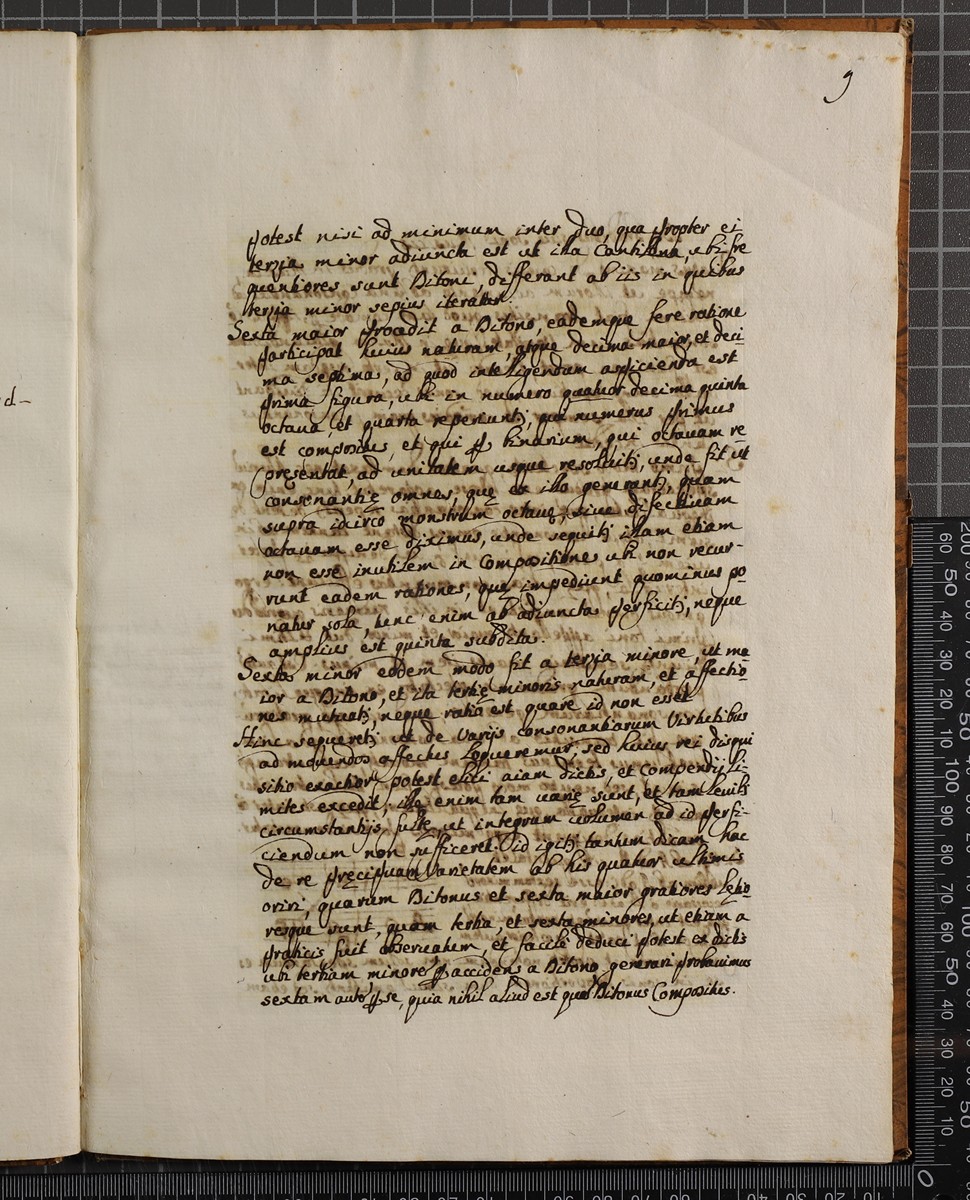 9
potest nisi ad minimum inter duo, qua propter ei
terzia minor adiuncta est ut illa Cantilena, ubi fre
quentiores sunt Ditoni, differant ab iis in quibus
terzia minor sepius iteratur.
Sexta maior procedit a Ditono, eademque fere ratione
participat huius naturam, atque decima maior, et deci
ma septima, ad quod intelligendum aspicienda est
prima figura, ubi in numero quatuor decima quinta
octava, et quarta reperiuntj, qui numerus primus
est compositus, et qui p binarium, qui octauam re
presentat, ad unitatem usque resoluitj, unde fit ut
consenantię omnes, quę ex illo generantj, quam
supra idcirco monstrum octauę, siue difectiuam
octauam esse diximus, unde sequitj illam etiam
non esse inutilem in Compositione ubi non recur-
runt eadem rationes, quę impediunt quominus po
natur sola, tunc enim ab adiuncta perficitj, neque
amplius est quinta subdita.
Sexta minor eodem modo fit a terzia minore, ut ma
ior a Ditono, et ita tertię minoris naturam, et affectio
nes mutuatj, neque ratio est quare id non esset
Hinc sequeretj ut de Varijs consonantiarum Virtutibus
ad mouendos affectus loqueremur sed huius rei disqui
sitio exactior potest elici aiam dictis, et Compendij li-
mites excedit, illę enim tam uarię sunt, et tam leuibs
circumstantijs fultę, ut integrum uolumen ad id perfi-
ciendum non sufficeret. id igitj tantum dicam hac
de re pręcipuam Varietatem ab his quatuor ultimis
oriri, quarum Ditonus et sexta maior gratiores lętio
resque sunt, quam tertia, et sexta minores, ut etiam a
praticis fuit obseruatum, et facile deduci potest ex dictis
ubi tertiam minore p accidens a Ditono generari probauimus
sextam aute p se, quia nihil aliud est qua Ditonus Compositus.